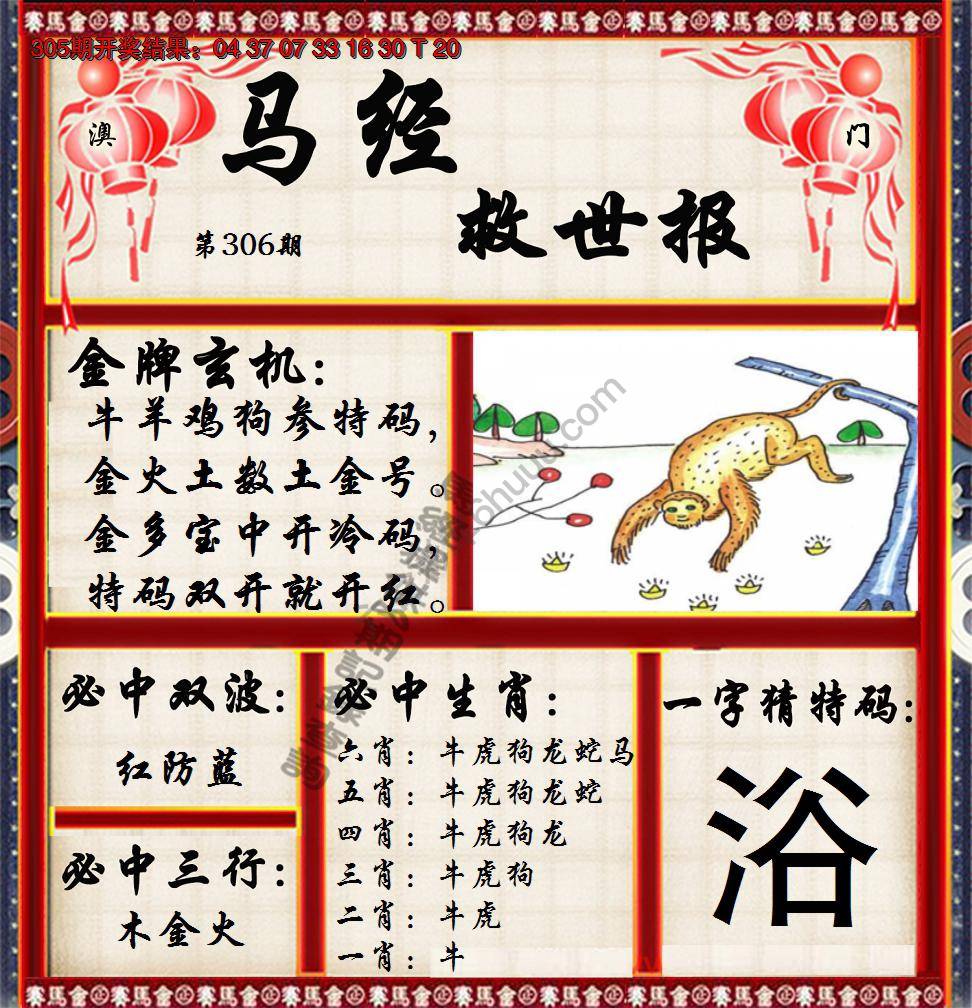 305期开奖结果：04 37 07 33 16 30 T 20
澳
门
马经
救世报
第306期
金牌玄机：
牛羊鸡狗参特码，
金火土数土金号。
金多宝中开冷码，
特码双开就开红。
必中双波：
红防蓝
必中三行：
木金火
必中生肖：
六肖：牛虎狗龙蛇马
五肖：牛虎狗龙蛇
四肖：牛虎狗龙
三肖：牛虎狗
二肖：牛虎
一肖：牛
一字猜特码：
浴